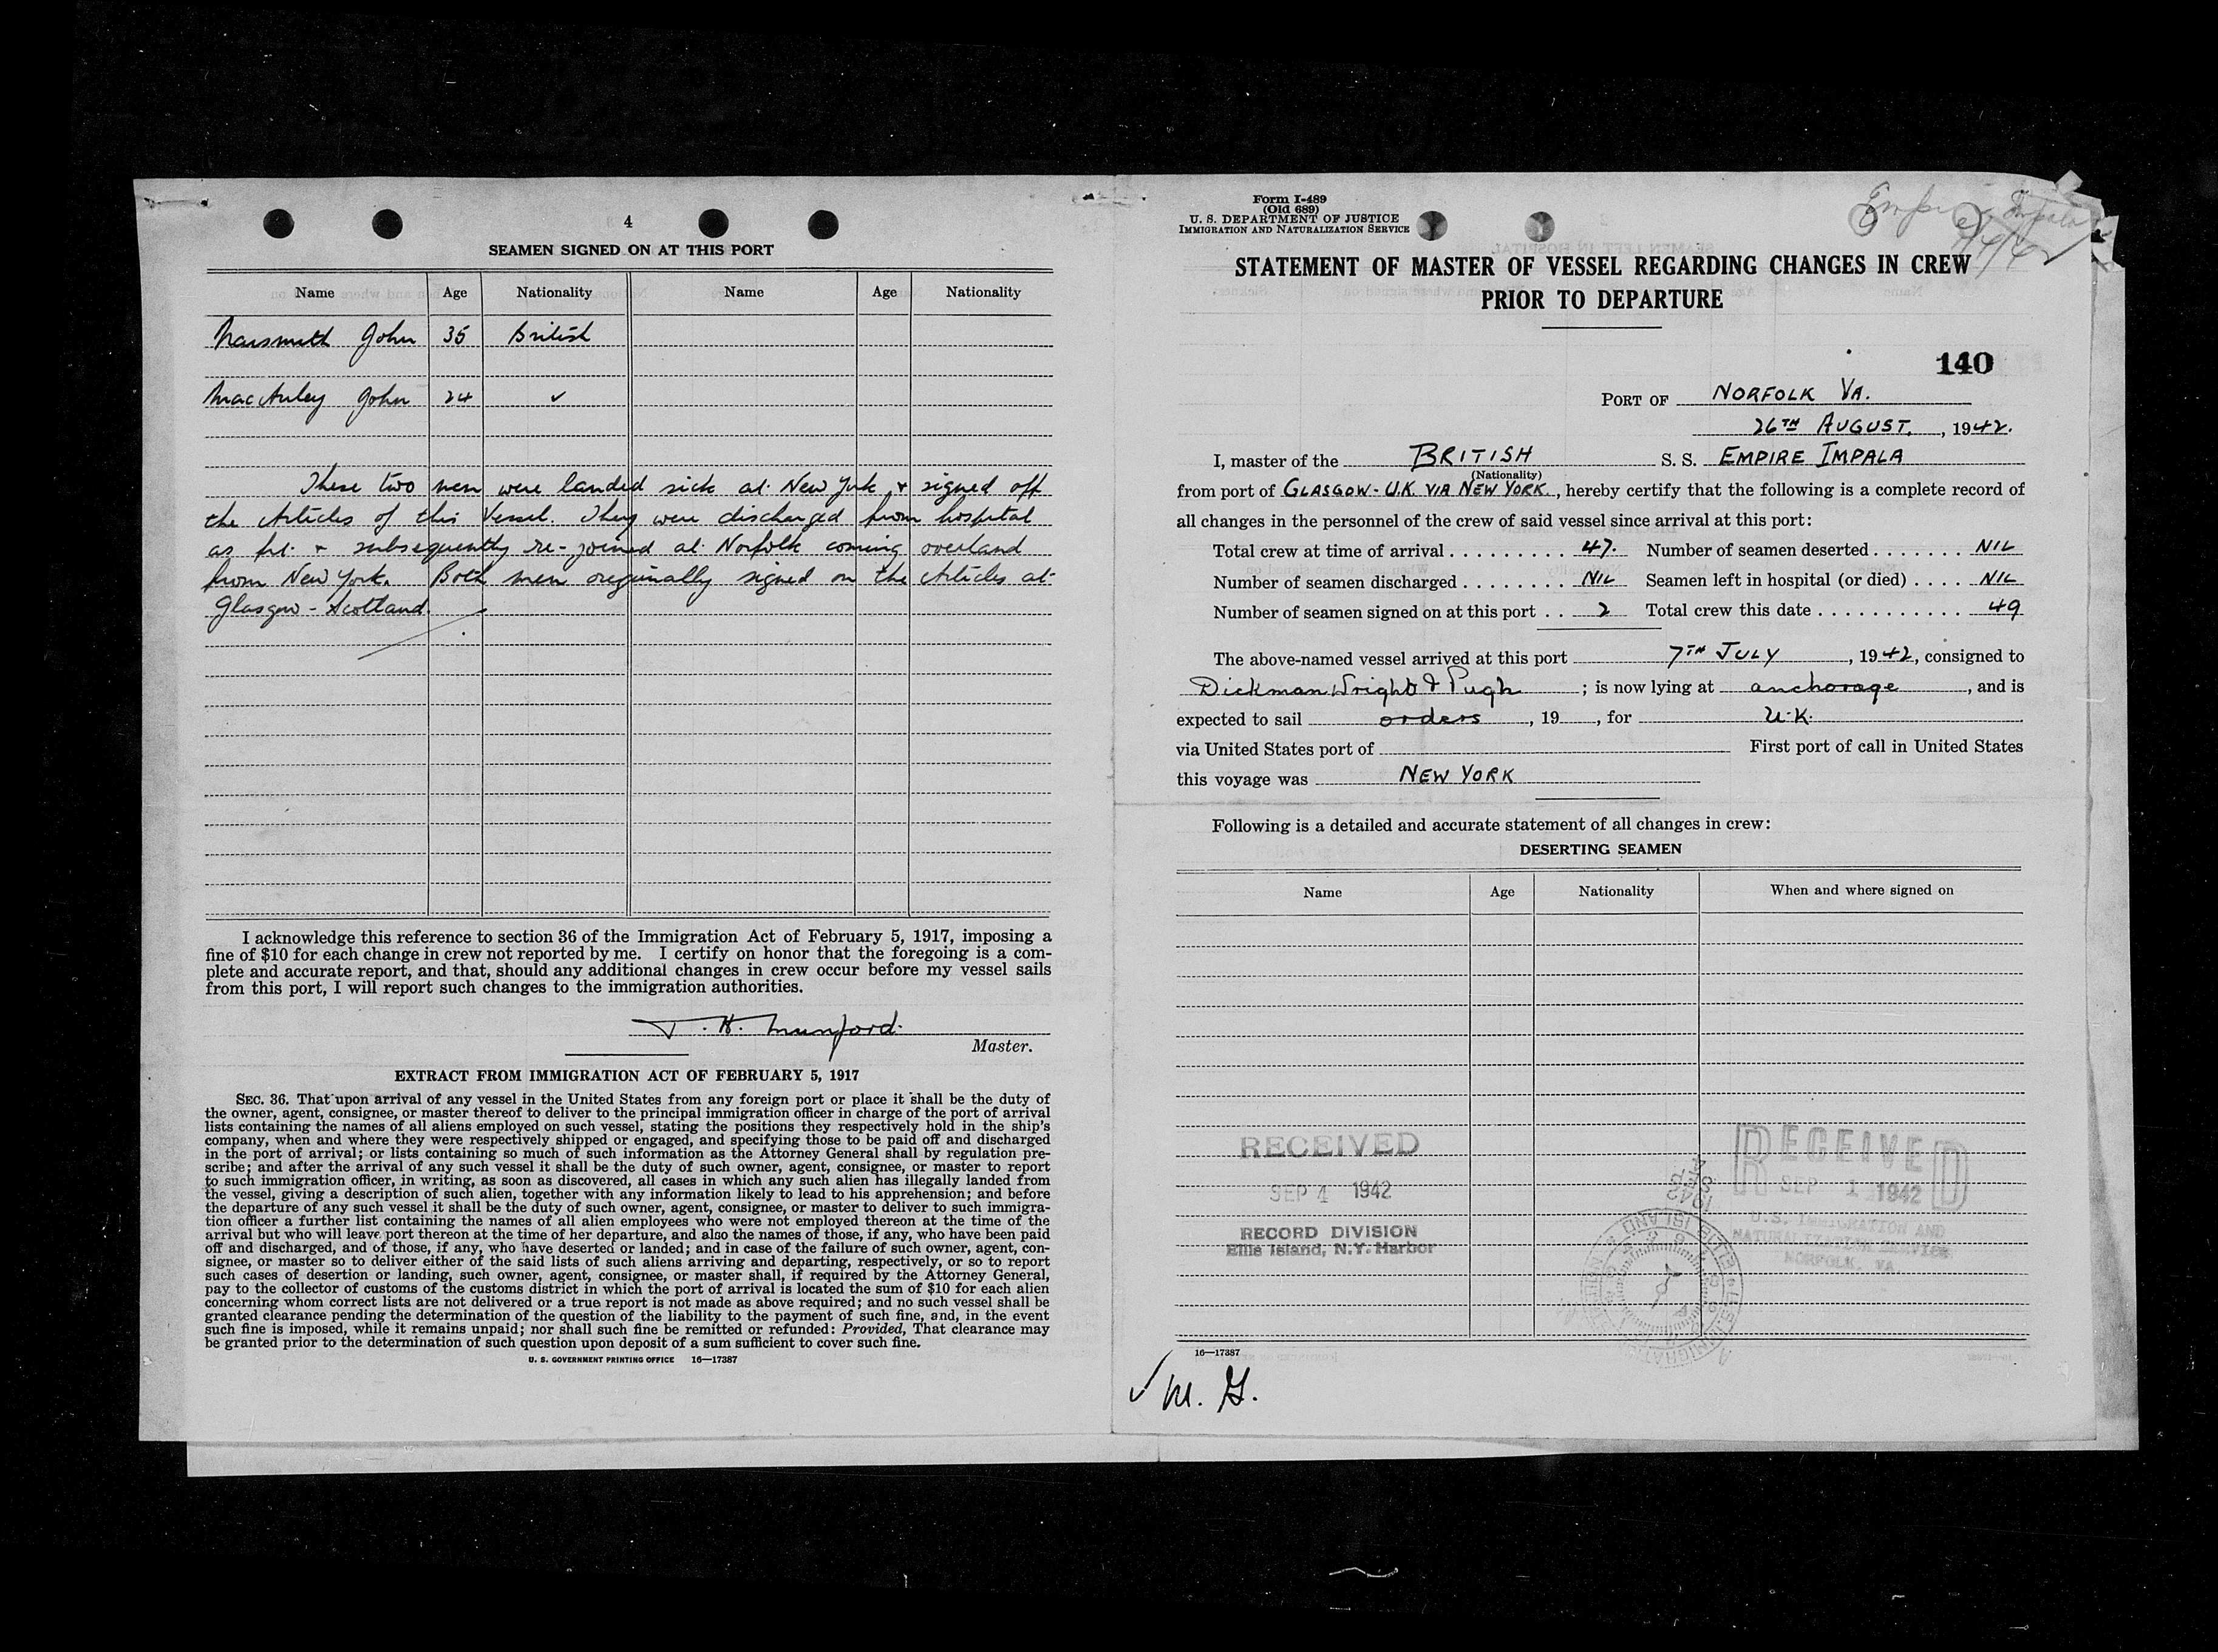 4
SEAMEN SIGNED ON AT THIS PORT
Name Age Nationality Name Age Nationality
Naismith John 35 British
MacAuley John 24 ✓
These two men were landed sick at New York & signed off
the Articles of this Vessel. They were discharged from hospital
as fit & subsequently re-joined at Norfolk coming overland
from New York. Both men originally signed on the Articles at
Glasgow - Scotland.
I acknowledge this reference to section 36 of the Immigration Act of February 5, 1917, imposing a
fine of $10 for each change in crew not reported by me. I certify on honor that the foregoing is a com-
plete and accurate report, and that, should any additional changes in crew occur before my vessel sails
from this port, I will report such changes to the immigration authorities.
T. H. Mumford.
Master.
EXTRACT FROM IMMIGRATION ACT OF FEBRUARY 5, 1917
SEC. 36. That upon arrival of any vessel in the United States from any foreign port or place it shall be the duty of
the owner, agent, consignee, or master thereof to deliver to the principal immigration officer in charge of the port of arrival
lists containing the names of all aliens employed on such vessel, stating the positions they respectively hold in the ship's
company, when and where they were respectively shipped or engaged, and specifying those to be paid off and discharged
in the port of arrival; or lists containing so much of such information as the Attorney General shall by regulation pre-
scribe; and after the arrival of any such vessel it shall be the duty of such owner, agent, consignee, or master to report
to such immigration officer, in writing, as soon as discovered, all cases in which any such alien has illegally landed from
the vessel, giving a description of such alien, together with any information likely to lead to his apprehension; and before
the departure of any such vessel it shall be the duty of such owner, agent, consignee, or master to deliver to such immigra-
tion officer a further list containing the names of all alien employees who were not employed thereon at the time of the
arrival but who will leave port thereon at the time of her departure, and also the names of those, if any, who have been paid
off and discharged, and of those, if any, who have deserted or landed; and in case of the failure of such owner, agent, con-
signee, or master so to deliver either of the said lists of such aliens arriving and departing, respectively, or so to report
such cases of desertion or landing, such owner, agent, consignee, or master shall, if required by the Attorney General,
pay to the collector of customs of the customs district in which the port of arrival is located the sum of $10 for each alien
concerning whom correct lists are not delivered or a true report is not made as above required; and no such vessel shall be
granted clearance pending the determination of the question of the liability to the payment of such fine, and, in the event
such fine is imposed, while it remains unpaid; nor shall such fine be remitted or refunded: Provided, That clearance may
be granted prior to the determination of such question upon deposit of a sum sufficient to cover such fine.
U. S. GOVERNMENT PRINTING OFFICE 16—17387
Form I-489
(Old 689)
U. S. DEPARTMENT OF JUSTICE
IMMIGRATION AND NATURALIZATION SERVICE
Empire Impala
STATEMENT OF MASTER OF VESSEL REGARDING CHANGES IN CREW
PRIOR TO DEPARTURE
140
PORT OF NORFOLK VA.
26TH AUGUST, 1942.
I, master of the BRITISH S. S. EMPIRE IMPALA
(Nationality)
from port of GLASGOW - U.K. VIA NEW YORK., hereby certify that the following is a complete record of
all changes in the personnel of the crew of said vessel since arrival at this port:
Total crew at time of arrival . . . . . . . . . 47. Number of seamen deserted . . . . . . . NIL
Number of seamen discharged . . . . . . . . NIL Seamen left in hospital (or died) . . . . NIL
Number of seamen signed on at this port . . 2 Total crew this date . . . . . . . . . . . . 49
The above-named vessel arrived at this port 7TH JULY, 1942, consigned to
Dickman Wright & Pugh; is now lying at anchorage, and is
expected to sail orders, 19 , for U.K.
via United States port of First port of call in United States
this voyage was NEW YORK
Following is a detailed and accurate statement of all changes in crew:
DESERTING SEAMEN
Name Age Nationality When and where signed on
RECEIVED
SEP 4 1942
RECORD DIVISION
Ellis Island, N.Y. Harbor
RECEIVED
SEP 1 1942
U.S. IMMIGRATION AND
NATURALIZATION SERVICE
NORFOLK, VA
16—17387
✓ M. G.